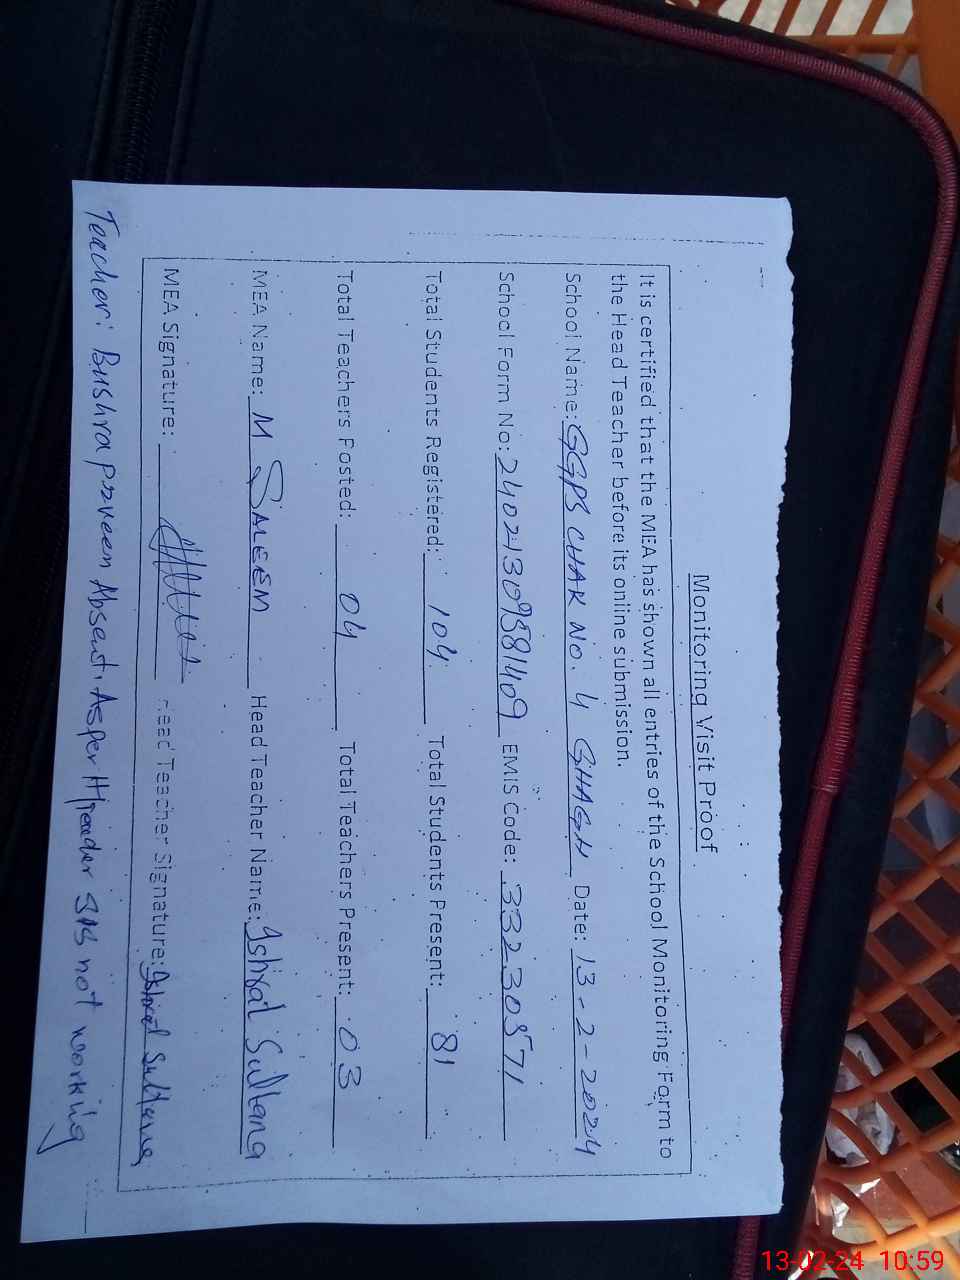 Monitoring Visit Proof
It is certified that the MEA has shown all entries of the School Monitoring Form to
the Head Teacher before its online submission.
School Name: GGPS CHAK NO. 4 GHAGH Date: 13-2-2024
School Form No: 24021309581409 EMIS Code: 33230571
Total Students Registered: 104 Total Students Present: 81
Total Teachers Posted: 04 Total Teachers Present: 03
MEA Name: M SALEEM Head Teacher Name: Ishrat Sultana
MEA Signature: Head Teacher Signature: Ishrat Sultana
Teacher: Bushra parveen Absent. As per H/teacher SIS not working
13-02-24 10:59